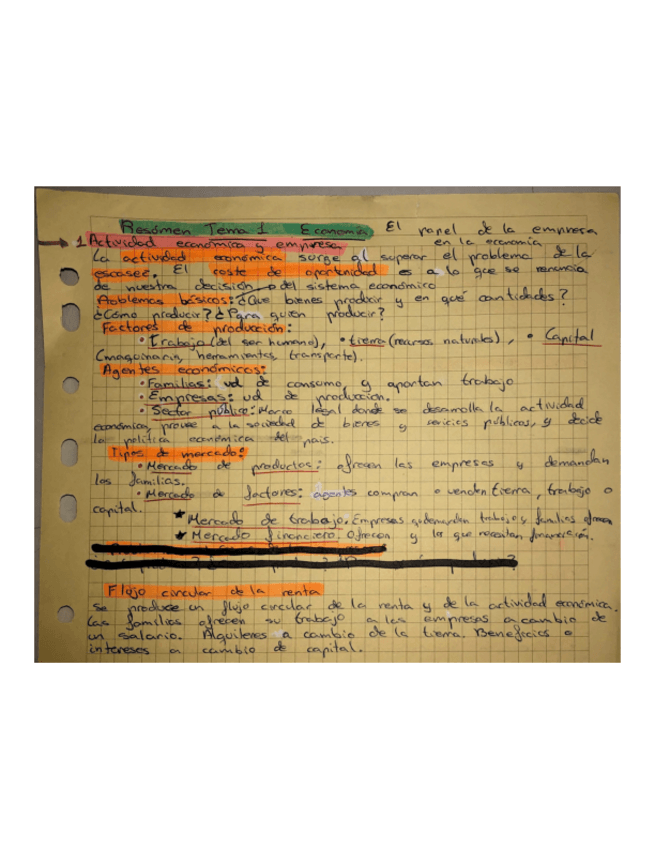 Resúmen Tema 1 Economía El papel de la empresa
en la economía
1 Actividad económica y empresa
La actividad económica surge al superar el problema de la
escasez. El coste de oportunidad es a lo que se renuncia
de nuestra decisión o del sistema económico
Problemas básicos: ¿Que bienes producir y en qué cantidades?
¿Cómo producir? ¿Para quien producir?
Factores de producción:
• Trabajo (del ser humano), • tierra (recursos naturales), • Capital
(maquinaria, herramientas, transporte).
Agentes económicos:
• Familias: ud de consumo y aportan trabajo
• Empresas: ud de producción.
• Sector público: Marco legal donde se desarrolla la actividad
económica, provee a la sociedad de bienes y servicios públicos, y decide
la política económica del país.
Tipos de mercado:
• Mercado de productos: ofrecen las empresas y demandan
las familias.
• Mercado de factores: agentes compran o venden tierra, trabajo o
capital.
★ Mercado de trabajo. Empresas demandan trabajo y familias ofrecen
★ Mercado financiero. Ofrecen y los que necesitan financiación.
Flujo circular de la renta
Se produce un flujo circular de la renta y de la actividad económica.
Las familias ofrecen su trabajo a las empresas a cambio de
un salario. Alquileres a cambio de la tierra. Beneficios o
intereses a cambio de capital.